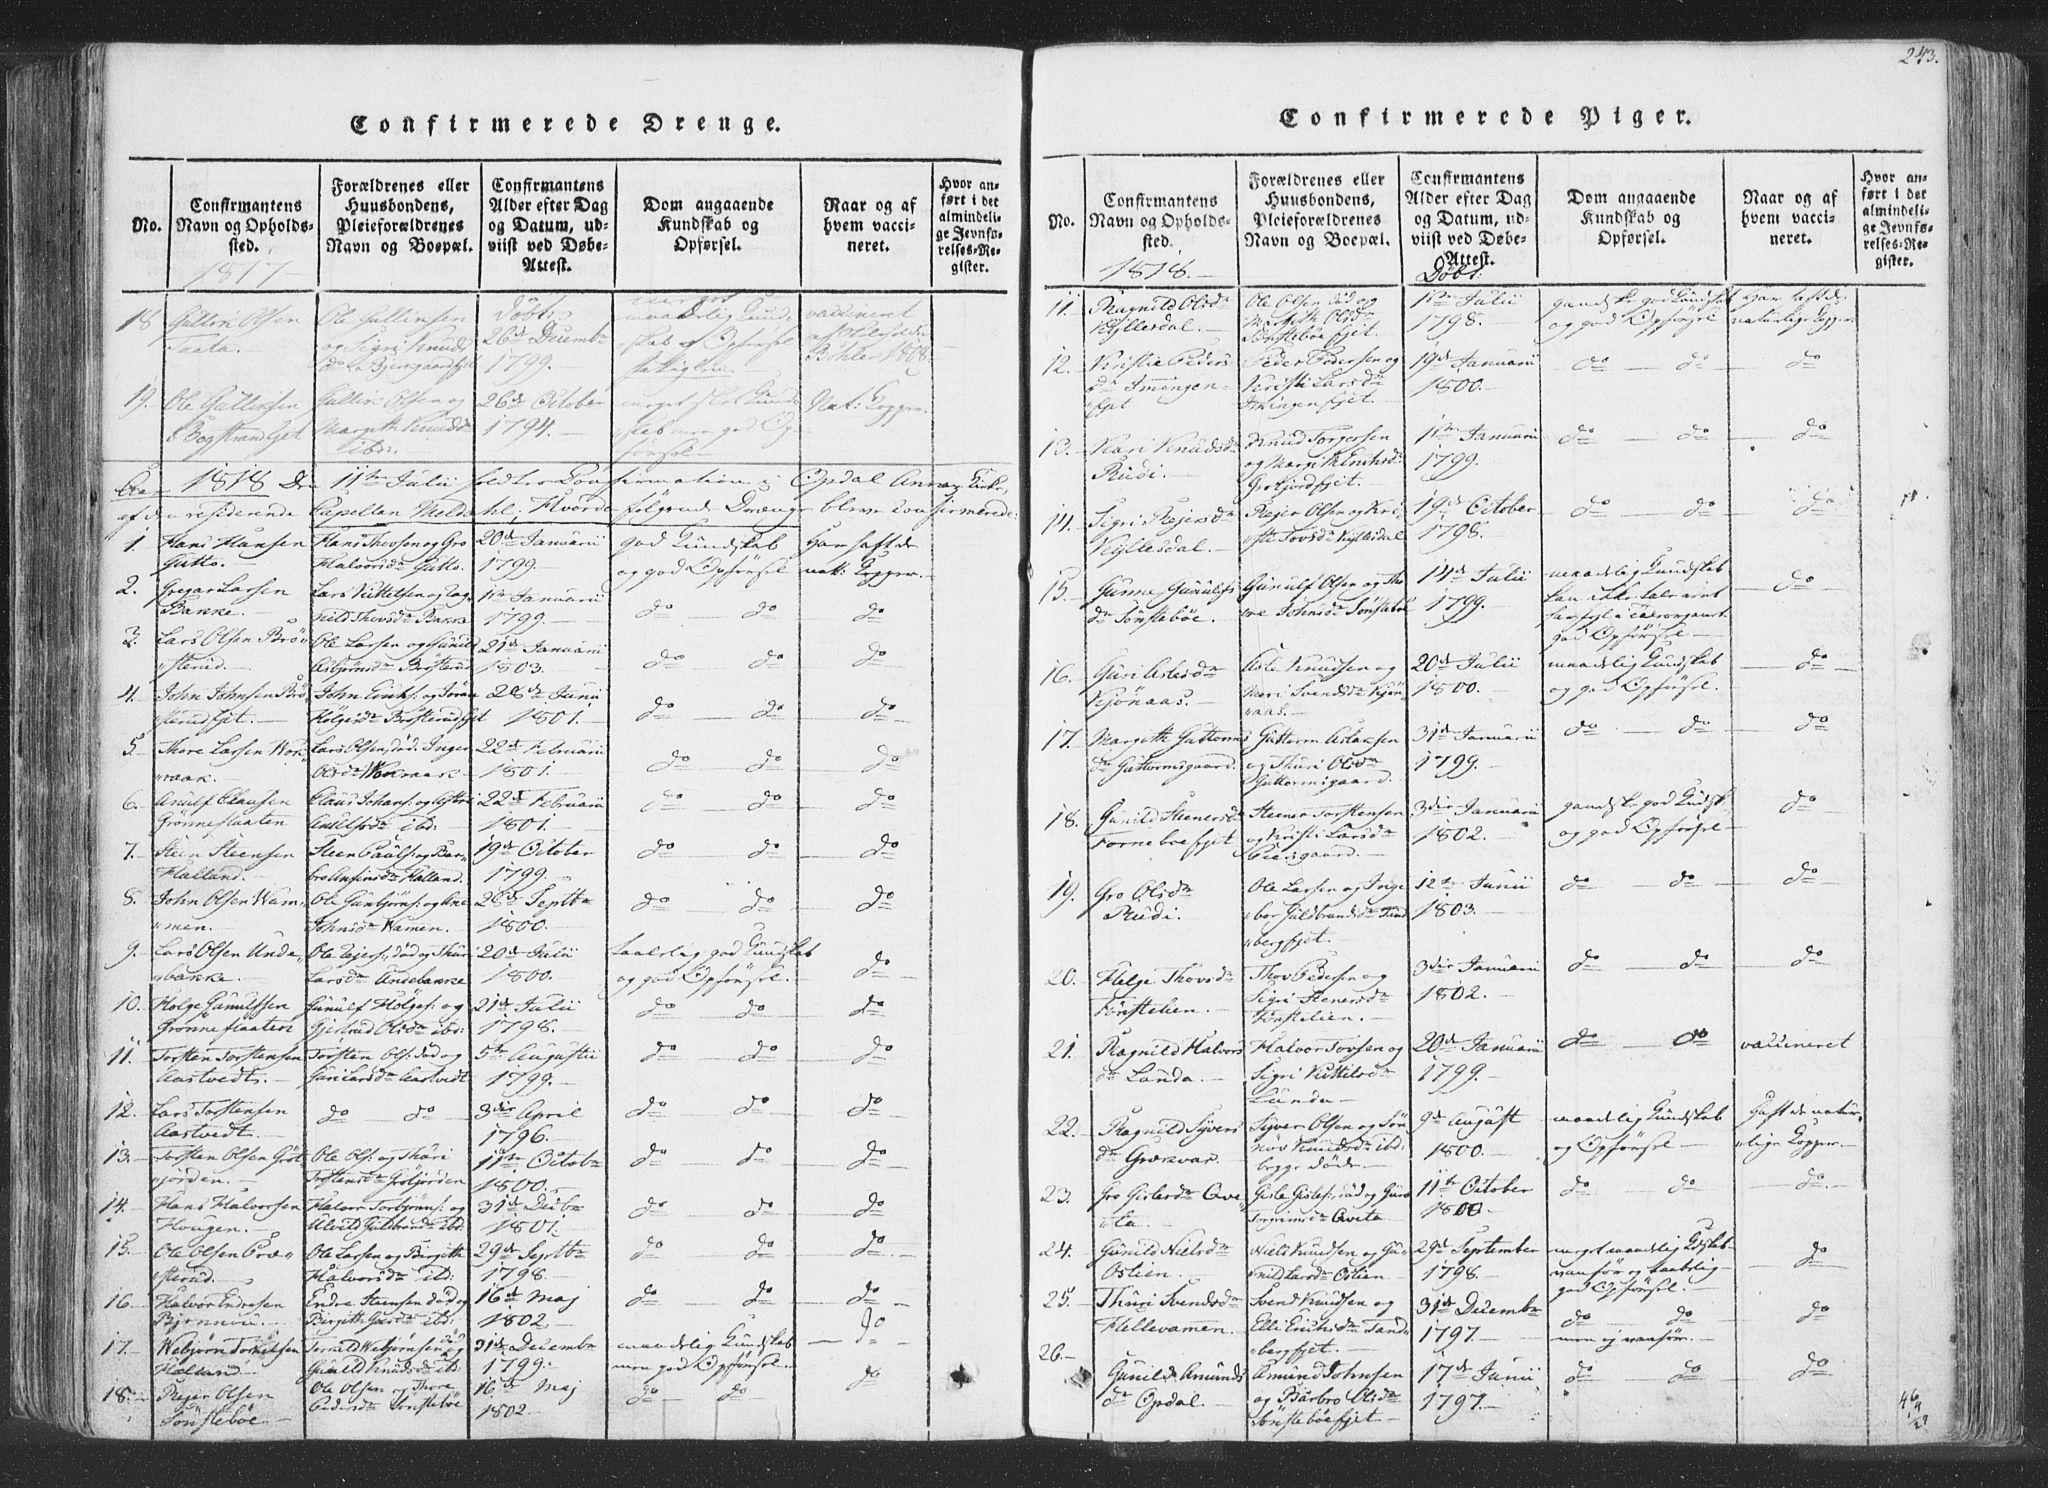 243.
Confirmerede Drenge.
No.
Confirmantens
Navn og Opholds-
sted.
1817
Forældrenes eller
Huusbondens,
Pleieforældrenes
Navn og Boepæl.
Confirmantens
Alder efter Dag
og Datum, ud-
viist ved Døbe-
Attest.
Dom angaaende
Kundskab og
Opførsel.
Naar og af
hvem vacci-
neret.
Hvor an-
ført i det
almindeli-
ge Jevnfø-
relses-Re-
gister.
18 Gutleri Olsen
Taata.
Ole Gulliksen
og Sigri Knuds
Døbt
26d Decembr
1799.
maadelig Kund-
skab & Opførsel
vaccineret
Bøhler 1808.
19. Ole Guttersen
Bogstrandfjet
Olsen og
Margith Knudsdr
ibd:
26d October
1794.
meget slet Kund-
skab men god Op-
førsel
Nat: Kopper.
Aar 1818 Den 11te Julii holdtes Confirmation i Opdal Annex Kirke,
af den residerende Capellan Meldahl; Hvorda følgende Drenge bleve Confirmerede:
1. Hans Hansen
Gutto.
Hans Thovsen og Gro
Halvorsdr Gutto.
20d Januarii
1799.
god Kundskab
og god Opførsel
Har haft de
nat: Kopper.
2. Gregar Larsen
Bakke.
Lars Kittelsen og Rag-
nild Thovsdr Bakke
1te Januarii
1799.
do do do
3. Lars Olsen Brø-
sterud.
Ole Larsen og Gunild
Asbjørnsdr Brøsterud
21d Januarii
1803.
do do do
4. John Johnsen Brø-
sterudfjet.
John Erichs: og Jøran
Holgerdr Brøsterudfjet
28de Junii
1801.
do do do
5. Thore Larsen Wor-
raak.
Lars Olsen død. Inger
Olsdr Worraak
22d Februarii
1801.
do do do
6. Anulf Clausen
Grønneflaaten
Claus Johans: og Astri
Anulfsdr ibd:
22d Februarii
1801.
do do do
7. Steen Steensen
Halland.
Steen Paulss og Bar-
bro Anfinsdr Halland.
19d October
1799.
do do do
8. John Olsen Wam-
men.
Ole Gunbjørns: og Ane
Johnsdr Wamen.
26d Septbr
1800.
do do do
9. Lars Olsen Unde-
bakke.
Ole Eyers: død og Thuri
Larsdr Undebakke
20d Julii
1800.
taalelig god Kundskab
og god Opførsel
do
10. Holge Gunulfsen
Grønneflaaten
Gunulf Holges: og
Gjertrud Olsdr ibd:
21d Julii
1798.
do do do
11. Torsten Torstensen
Aastvedt.
Torsten Ols: død og
Guri Larsdr Aastvedt
5te Augustii
1799.
do do do
12. Lars Torstensen
Aastvedt.
do do
3die April
1796.
do do do
13. Torsten Olsen Grøt-
jorden.
Ole Ols: og Thuri
Torstensdr Grøtjorden
11te Octobr
1800.
do do do
14. Hans Halvorsen
Hougen.
Halvor Torbjørns: og
Ulvild Guldbrandsdr ibd:
31d Decbr
1801.
do do do
15. Ole Olsen Præ-
sterud.
Ole Larsen og Birgith
Halvorsdr ibd:
29d Septbr
1798.
do do do
16. Halvor Endresen
Bjønnvii.
Endre Steensen død og
Birgith ibd:
16d Maj
1802.
do do do
17. Webjørn Torkilsen
Halland.
Torkild Webjørnsen død og
Gunild Knudsdr ibd:
31d Decembr
1799.
maadelig Kundskab
men god Opførsel.
do
18. Rejer Olsen
Sønstebøe.
Ole Olsen og Thore
Pedersdr Sønstebøe
16d Maj
1802.
do do do
Confirmerede Piger.
No.
Confirmantens
Navn og Opholds-
sted.
1818.
Forældrenes eller
Huusbondens,
Pleieforældrenes
Navn og Boepæl.
Confirmantens
Alder efter Dag
og Datum, ud-
viist ved Døbe-
Attest.
Døbt:
Dom angaaende
Kundskab og
Opførsel.
Naar og af
hvem vacci-
neret.
Hvor an-
ført i det
almindeli-
ge Jevnfø-
relses-Re-
gister.
11. Ragnild Olsdr
Kyllesdal.
Ole Olsen død og
Margith Olsdr
Sønstebøefjet
11te Julii
1798.
gandske god Kundskab
og god Opførsel
Har haft de
naturlige Kopper
12. Kristie Peders
dr Imingen-
fjet
Peder Pedersen og
Kristi Larsdr
Imingenfjet.
19d Januarii
1800.
do do do
13. Kari Knudsdr
Rudi.
Knud Torgersen
og Margith Erichsdr
Grotjordfjet.
11te Januarii
1799.
do do do
14. Sigri Rejersdr
Kyllesdal.
Rejer Olsen og Kri-
sti Tovsdr Kyllesdal
19d October
1798.
do do do
15. Gunne Gunulfs
dr Sønstebøe.
Gunulf Olsen og Tho-
re Johnsdr Sønstebøe
14d Julii
1799.
maadelig Kundskab
kan ikke tale
god Opførsel
do
16. Guri Aslesdr
Kjønaas.
Asle Knudsen og
Mari Svendsdr Kjøn-
aas.
20d Julii
1800.
maadelig Kundskab
og god Opførsel.
do
17. Margith Guttorms
dr Guttormsgaard.
Guttorm Aslaksen
og Thuri Olsdr
Guttormsgaard.
31d Januarii
1799.
do do do
18. Gunild Steenersdr
Forneboefjet
Steener Torstensen
og Kristi Larsdr
Giersgaard.
3die Januarii
1802.
gandske god Kundsk.
og god Opførsel
do
19. Gro Olsdr
Rudi.
Ole Larsen og Inge-
bor Guldbrandsdr Tand-
bergfjet.
12te Junii
1803.
do do do
20. Helge Thovsdr
Fønstelien.
Thov Pedersen og
Sigri Steenersdr
Fønstelien.
3die Januarii
1802.
do do do
21. Ragnild Halvors
dr Landa.
Halvor Tovsen og
Sigri Kittelsdr
Lunda
20d Januarii
1799.
do do vaccineret
22. Ragnild Syvers
dr Grækvar.
Syver Olsen og Søn-
nøv Knudsdr ibd:
begge døde.
9d August
1800.
maadelig Kundskab
og Opførsel
Haft de natur-
lige Kopper.
23. Gro Gislesdr Qve-
ta.
Gisle Gisles: død og Guro
Torgrimsdr Qveta
11te October
1800.
do do do
24. Gunild Nielsdr
Ostien.
Niels Knudsen og Gu-
nild Larsdr Ostien
29d September
1798.
meget maadelig Kdskab
vanfør og
god Opførsel.
do
25. Thuri Svendsdr
Hellevamen.
Svend Knudsen og
Elli Erichsdr Tand-
bergfjet.
31d Decembr
1797.
do do
men ej vanfør.
do
26. Gunild Amunds
dr Opdal.
Amund Johnsen
og Barbro Olsdr
Sønstebøefjet
17d Junii
1797.
do do do